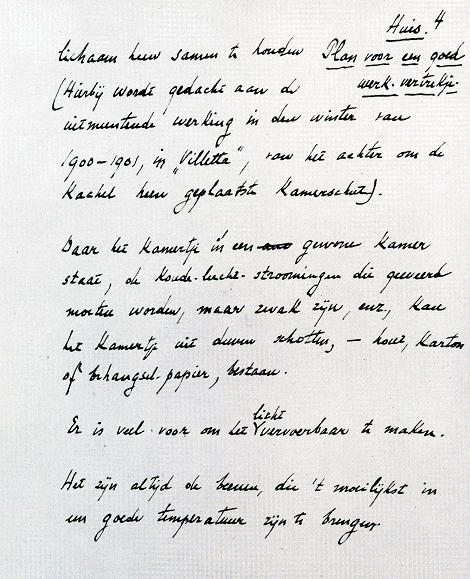 Huis. 4
lichaam heen samen te houden Plan voor een goed
(Hierbij wordt gedacht aan de werk-vertrekje.
uitmuntende werking in den winter van
1900-1901, in "Villetta", van het achter om de
Kachel heen geplaatste Kamerschut).
Daar het Kamertje in een gewone Kamer
staat, de Koude-lucht-stroomingen die geweerd
moeten worden, maar zwak zijn, enz., kan
het Kamertje uit dunne schotten, – hout, Karton
of behangsel-papier, bestaan.
licht
Er is veel voor om het vervoerbaar te maken.
Het zijn altijd de beenen, die 't moeilijkst in
een goede temperatuur zijn te brengen